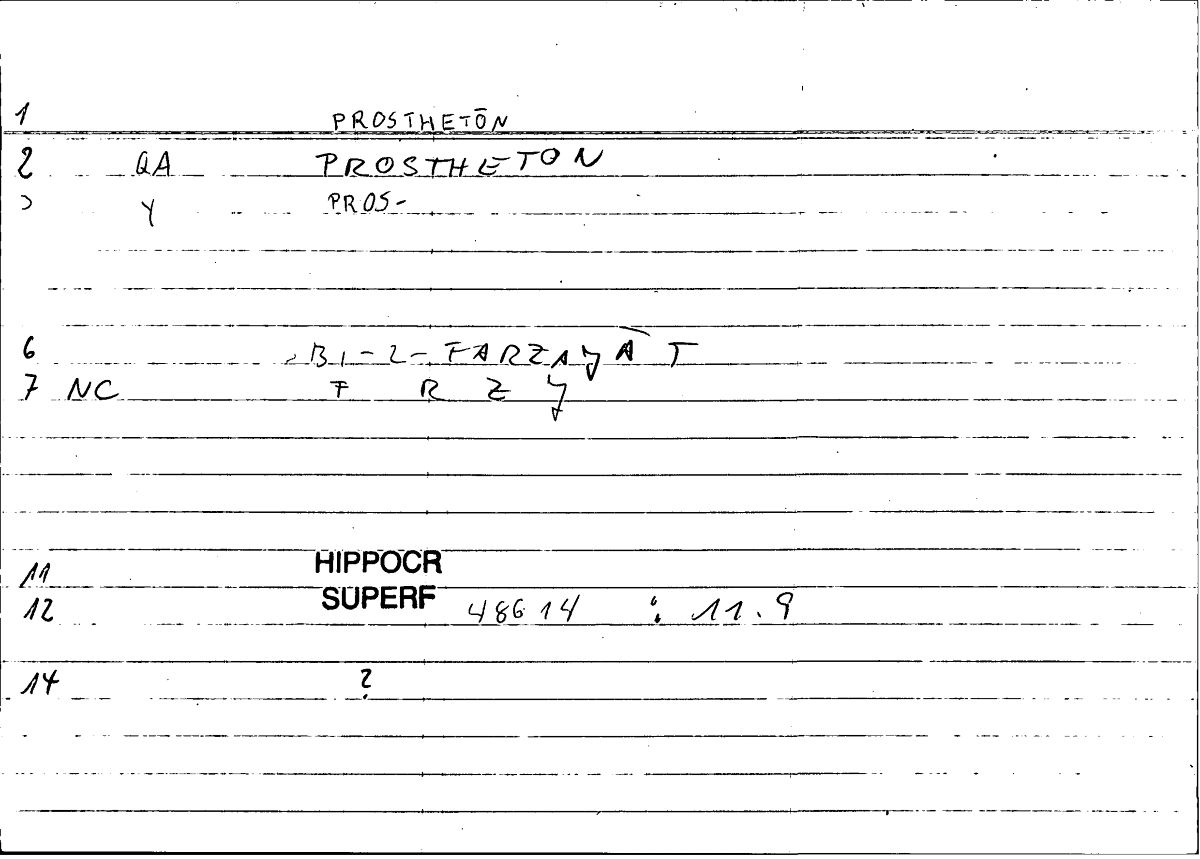 1 PROSTHETŌN
2 QA PROSTHETON
3 Y PROS-
6 BI-L-FARZAJĀT
7 NC F R Z J
11 HIPPOCR
12 SUPERF 48614 : 11.9
14 ?